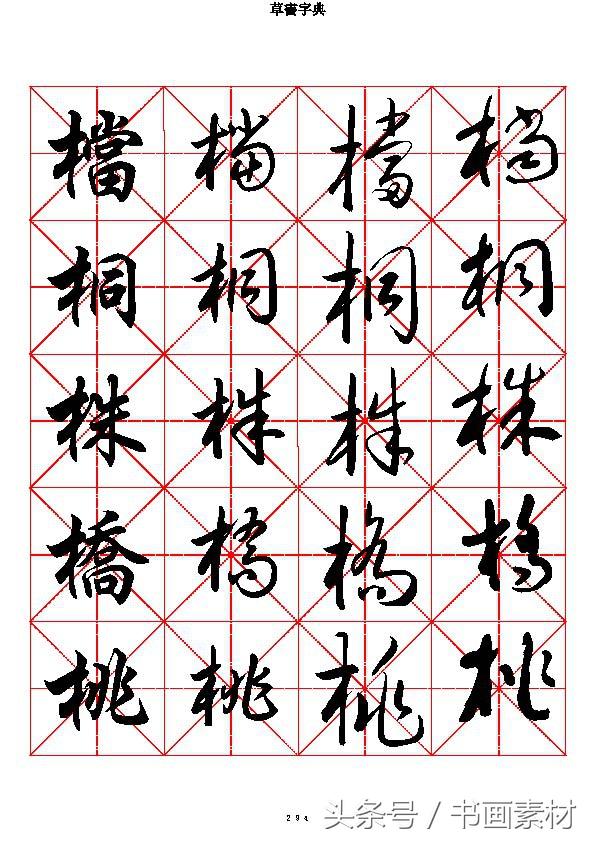 草書字典
檔檔檔檔
桐桐桐桐
株株株株
橋橋橋橋
桃桃桃桃
294
头条号 / 书画素材